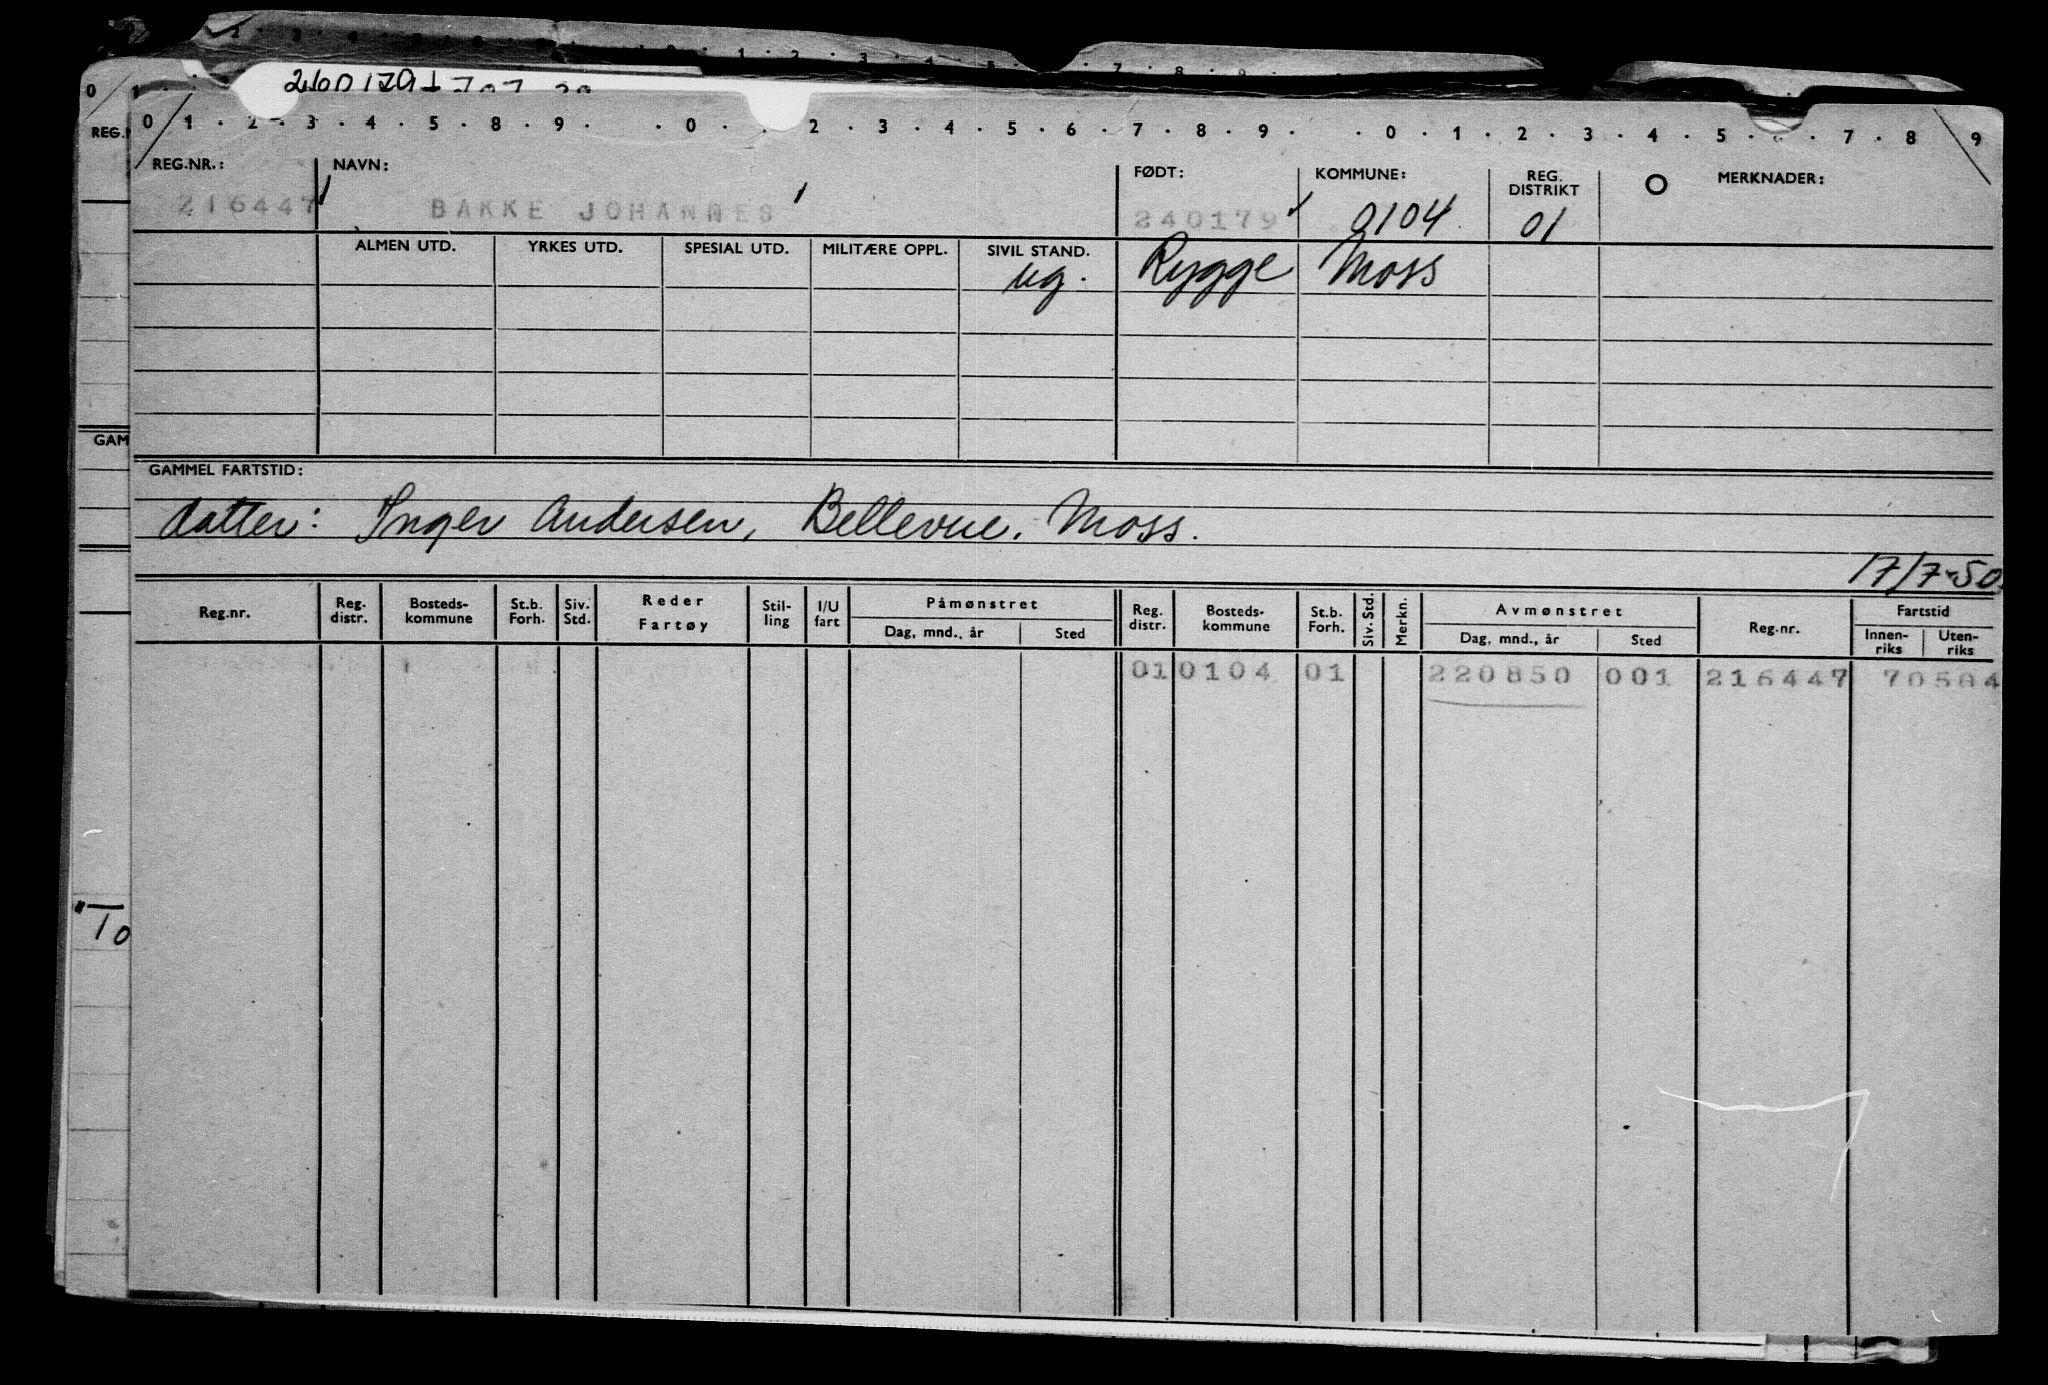 0 1 . 2 . 3 . 4 . 5 . 8 . 9 . . 0 . 2 . 3 . 4 . 5 . 6 . 7 . 8 . 9 . . 0 . 1 . 2 . 3 . 4 . 5 . . 7 . 8 9
REG.NR.: NAVN: FØDT: KOMMUNE: REG. DISTRIKT MERKNADER:
216447 BAKKE JOHANNES 240179 0104 01
ALMEN UTD. YRKES UTD. SPESIAL UTD. MILITÆRE OPPL. SIVIL STAND.
ug. Rygge Moss
GAM
GAMMEL FARTSTID:
datter: Inger Andersen, Bellevue, Moss.
17/7-50
Reg.nr. Reg. distr. Bosteds- kommune St.b. Forh. Siv. Std. Reder Fartøy Stil- ling I/U fart Påmønstret Dag, mnd., år Sted Reg. distr. Bosteds- kommune St.b. Forh. Siv. Std. Merkn. Avmønstret Dag, mnd., år Sted Reg.nr. Fartstid Innen- riks Uten- riks
01 0104 01 220850 001 216447 70504